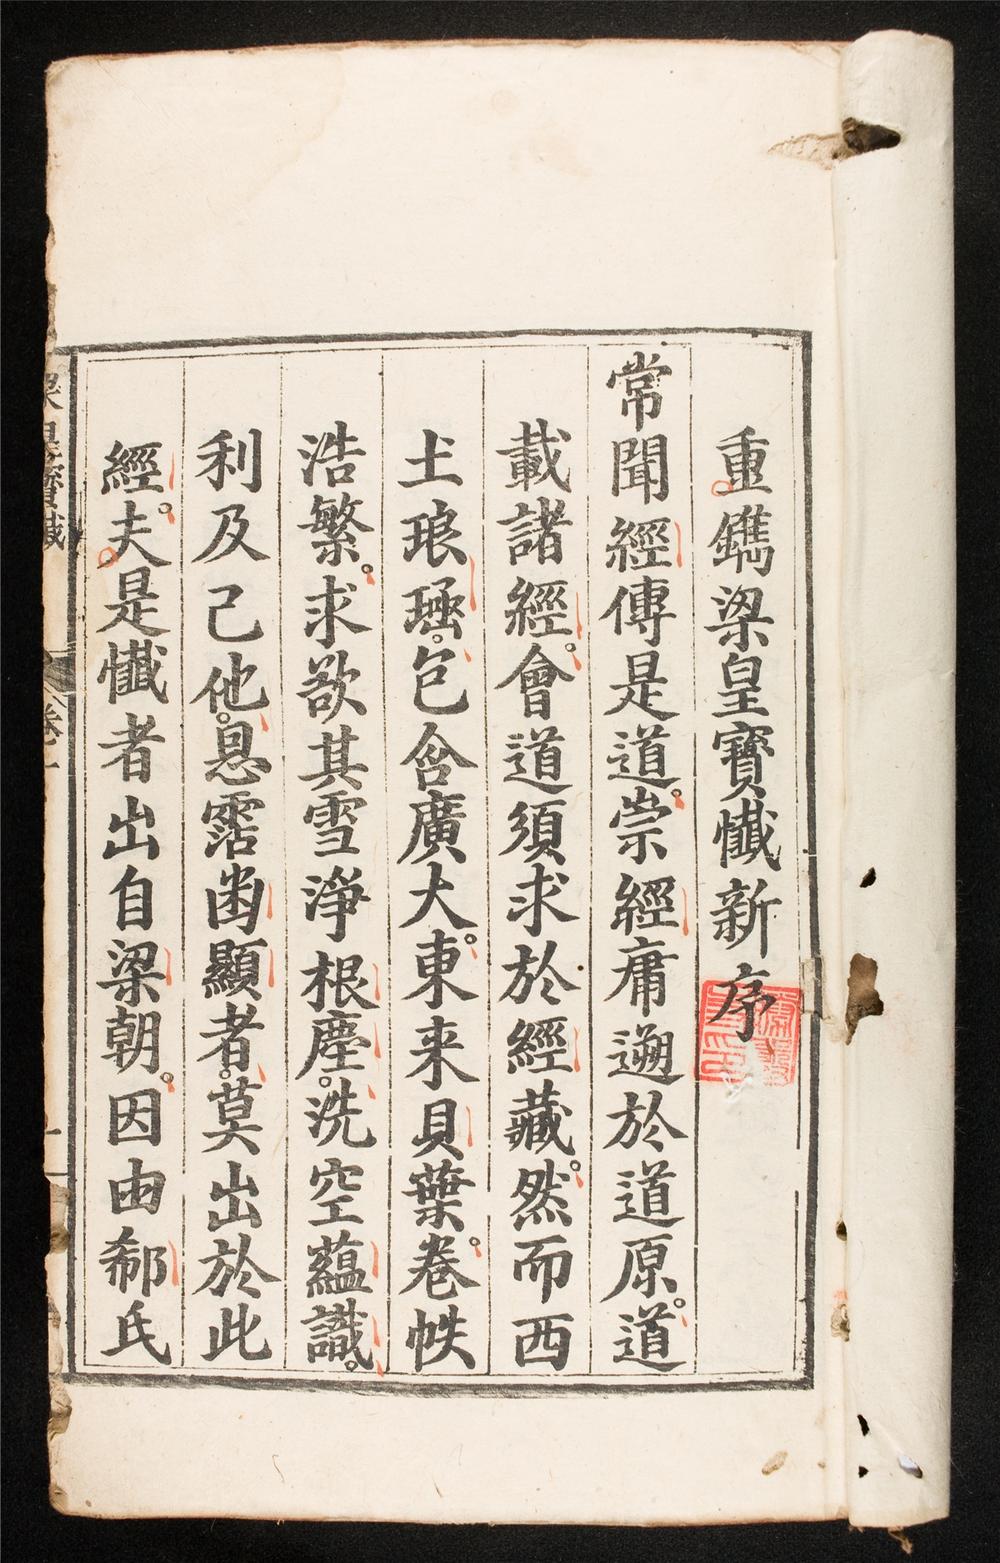 重鐫梁皇寶懺新序
常聞經傳是道崇經庸遡於道原道
載諸經會道須求於經藏然而西
土琅函包含廣大東来貝葉卷帙
浩繁求欲其雪淨根塵洗空蘊識
利及己他恩霑幽顯者莫出於此
經夫是懺者出自梁朝因由郗氏